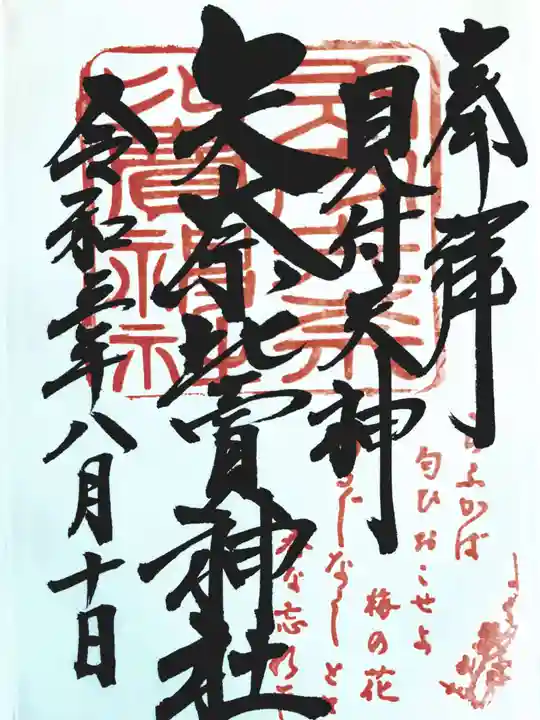 奉拝
見付天神
矢奈比賣神社
令和三年八月十日
こふかば
匂ひおこせよ
梅の花
るじなしと
な忘れ